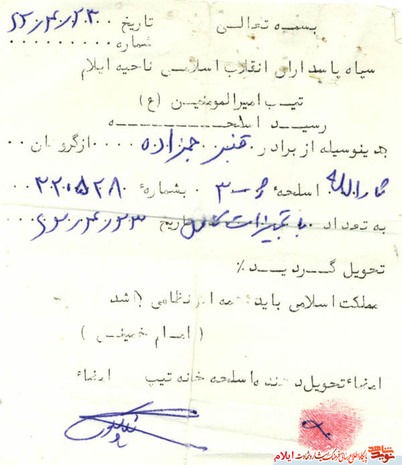 بسمه تعالی
تاریخ ۶۲/۰۴/۲۳
شماره
سپاه پاسداران انقلاب اسلامی ناحیه ایلام
تیپ امیرالمومنین (ع)
رسید اسلحه
بدینوسیله از برادر قنبر حمزاده از گروهان
ثارالله اسلحه ژ-۳ بشماره ۳۲۰۵۲۸
به تعداد با تجهیزات کامل تاریخ ۶۲/۰۴/۲۳
تحویل گردید٪
مملکت اسلامی باید همه اش نظامی باشد
(امام خمینی)
امضاء تحویل دهنده اسلحه خانه تیپ امضاء
نوید شاهد
ایلام